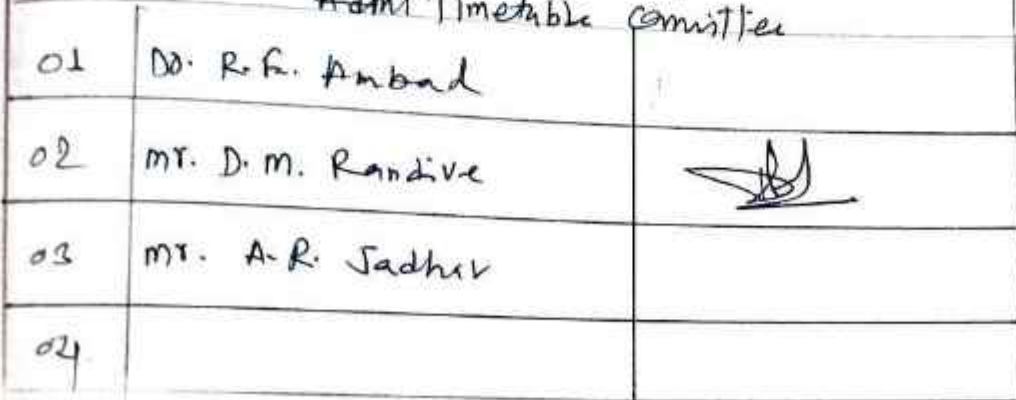 Timetable Committee
01 Dr. R. G. Ambad
02 Mr. D. M. Randive
03 Mr. A. R. Jadhav
04